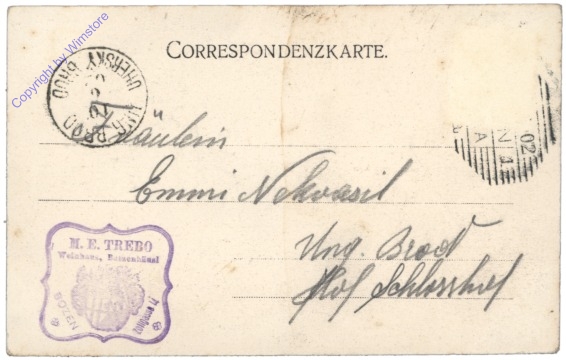 Copyright by Wimstore
CORRESPONDENZKARTE.
UNG. BROD
UHERSKÝ BROD
02
Fräulein
Emmi Nekvasil
Ung. Brod
Hof Schlosshof
M. E. TREBO
Weinhaus, Batzenhäusl
BOZEN